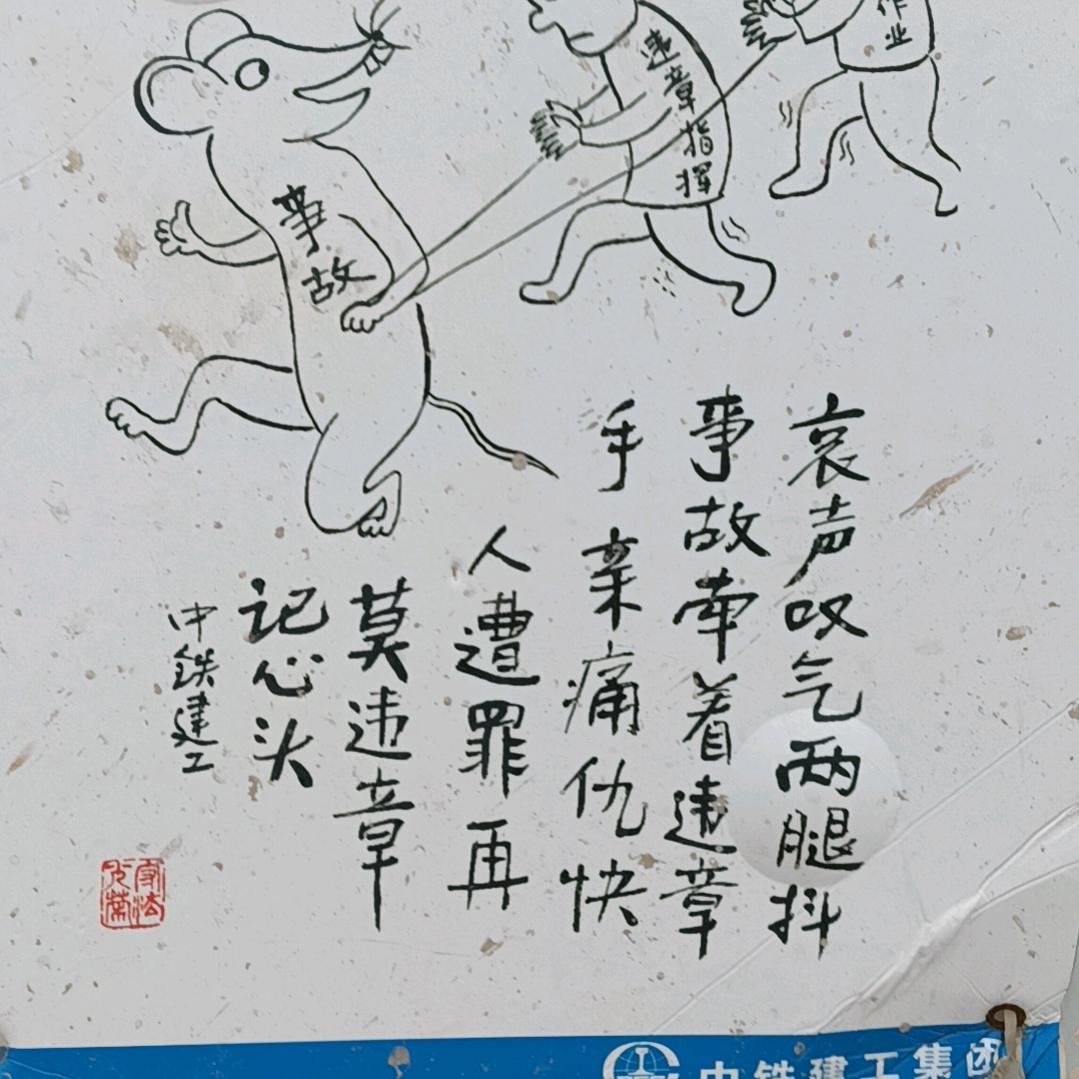 作业
违章指挥
事故
哀声叹气两腿抖
事故牵着违章
手 亲痛仇快
人遭罪再
莫违章
记心头
中铁建工
中铁建工集团